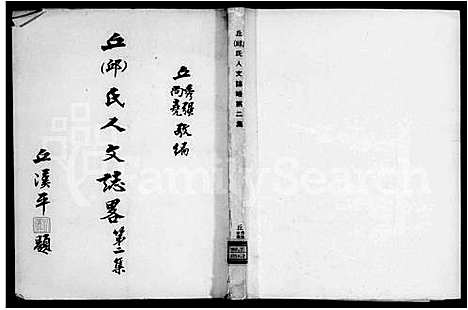 丘秀强
尚堯 敬編
丘(邱)氏人文誌畧第二集
丘漢平題
丘(邱)氏人文誌略第二集
丘
FamilySearch